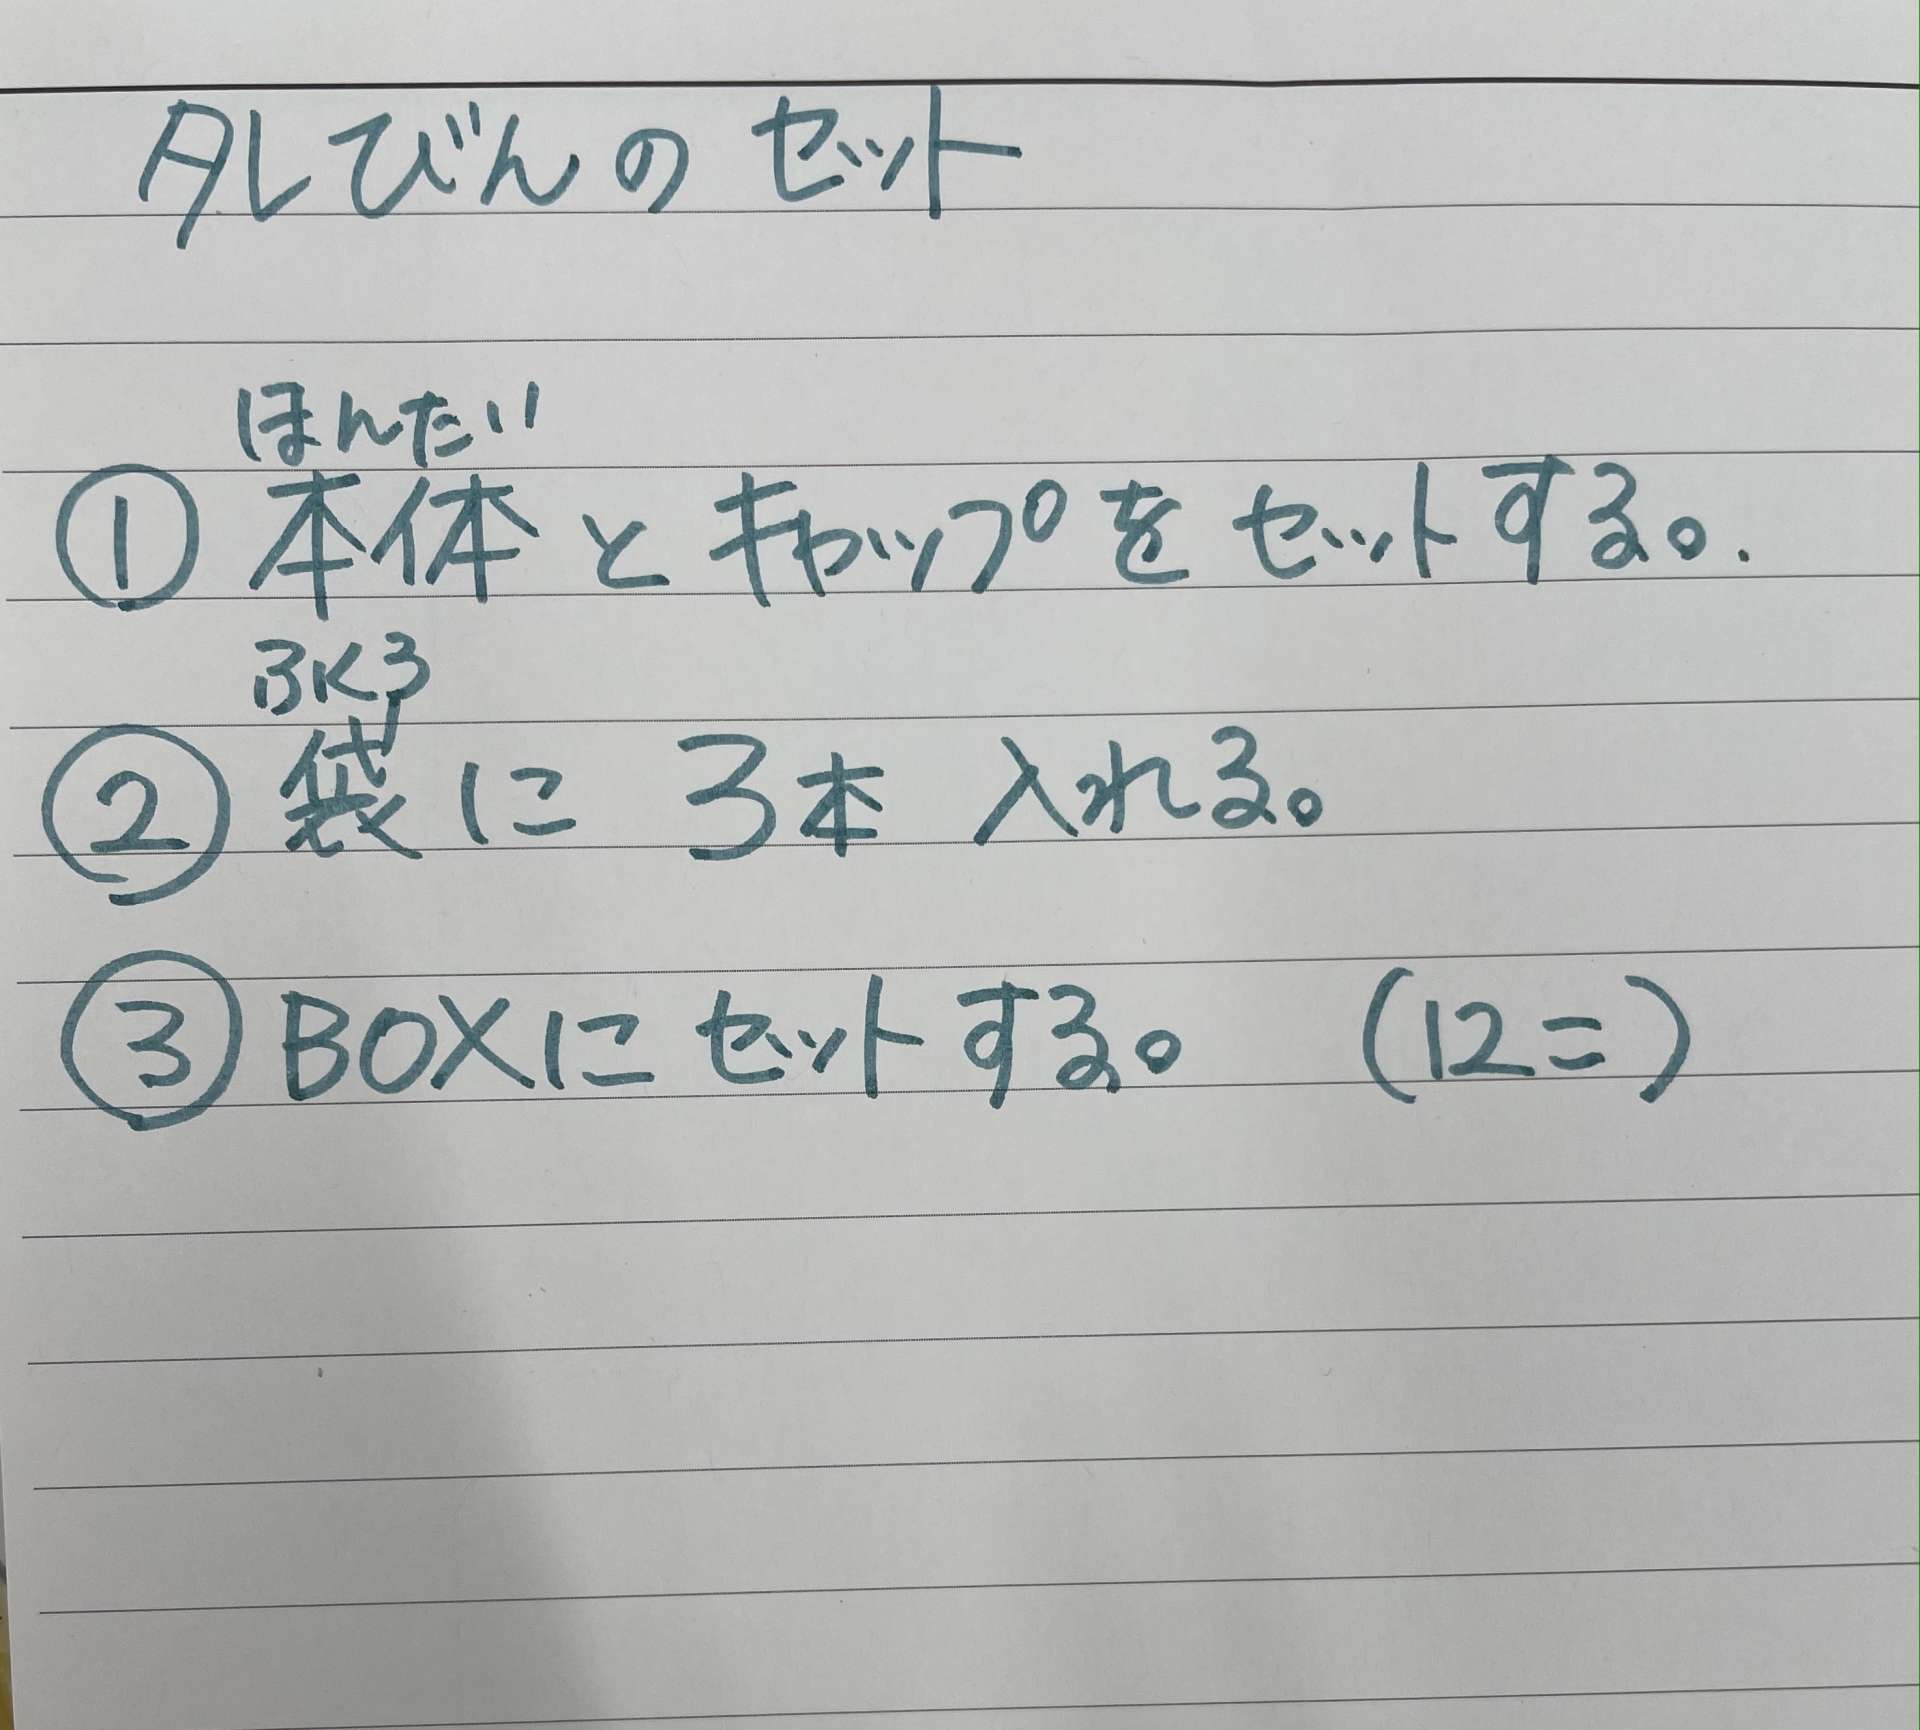 タレびんのセット
ほんたい
① 本体とキャップをセットする。
ふくろ
② 袋に 3本 入れる。
③ BOXに セットする。 (12コ)